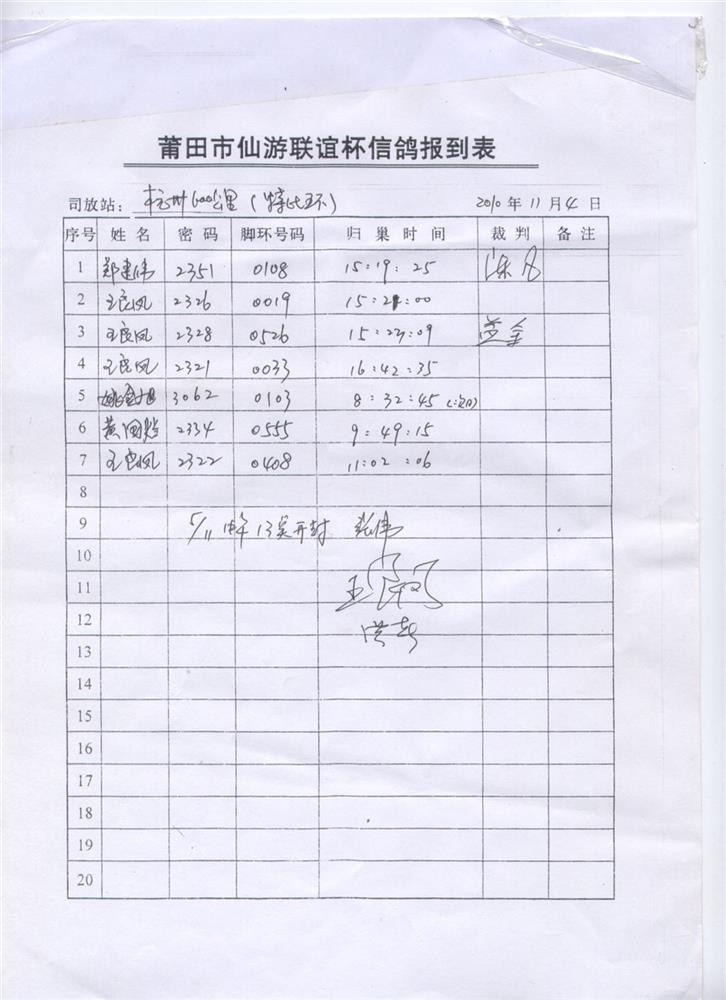 莆田市仙游联谊杯信鸽报到表
司放站: 杭州600公里(特比环) 2010年11月4日
序号 姓名 密码 脚环号码 归巢时间 裁判 备注
1 郑建伟 2351 0108 15:19:25
2 王良凤 2326 0019 15:21:00
3 王良凤 2328 0526 15:27:09
4 王良凤 2321 0033 16:42:35
5 3062 0103 8:32:45(次日)
6 黄国 2334 0555 9:49:15
7 王良凤 2322 0408 11:02:06
8
9 5/11 开封
10
11
12
13
14
15
16
17
18
19
20